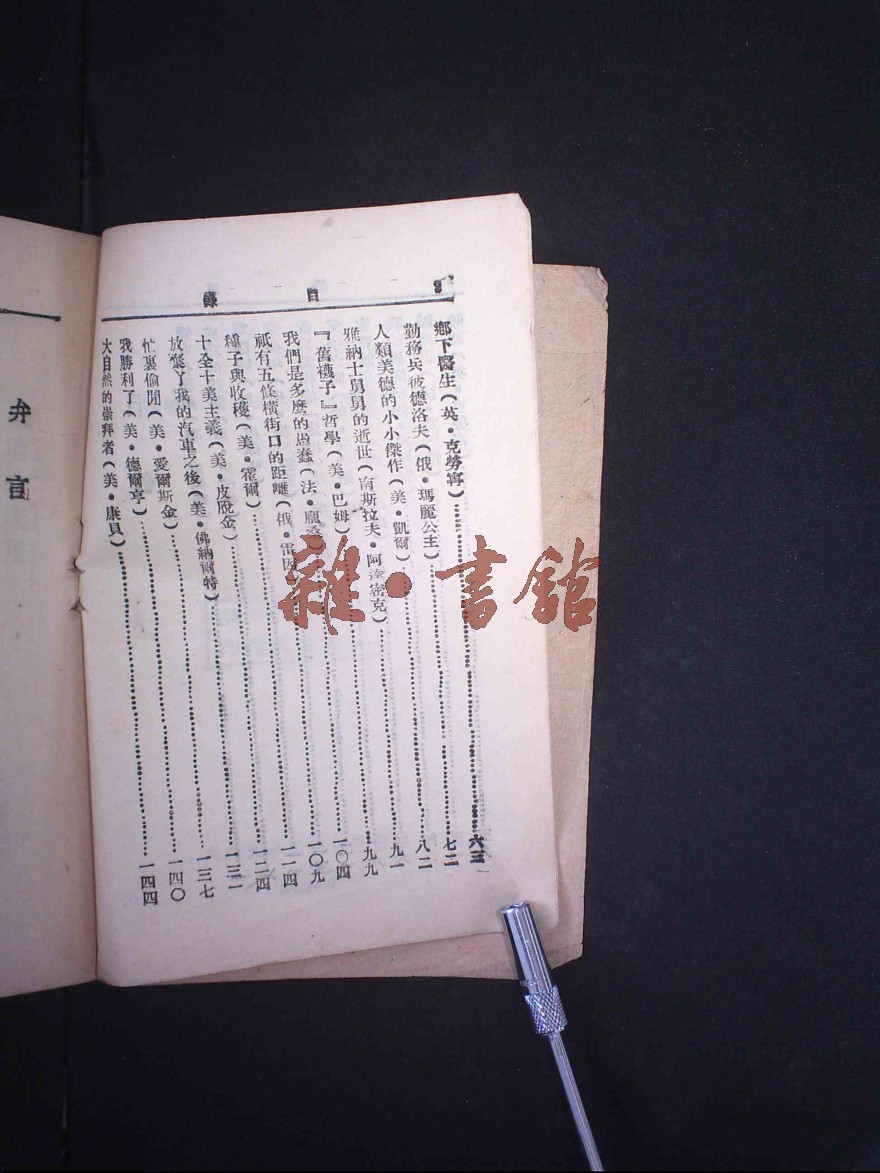 目錄
鄉下醫生(英·克勞寗)……六三
勤務兵彼德洛夫(俄·瑪麗公主)……七二
人類美德的小小傑作(美·凱爾)……八二
雅納士舅舅的逝世(南斯拉夫·阿達密克)……九一
『舊襪子』哲學(美·巴姆)……九九
我們是多麼的愚蠢(法·龐)……一〇四
祇有五條橫街口的距離(俄·雷因)……一〇九
種子與收穫(美·霍爾)……一一四
十全十美主義(美·皮脫金)……一二四
放棄了我的汽車之後(美·佛納爾特)……一三一
忙裏偷閒(美·愛爾斯金)……一三七
我勝利了(美·德爾亨)……一四〇
大自然的崇拜者(美·康貝)……一四四
弁言
雜·書館